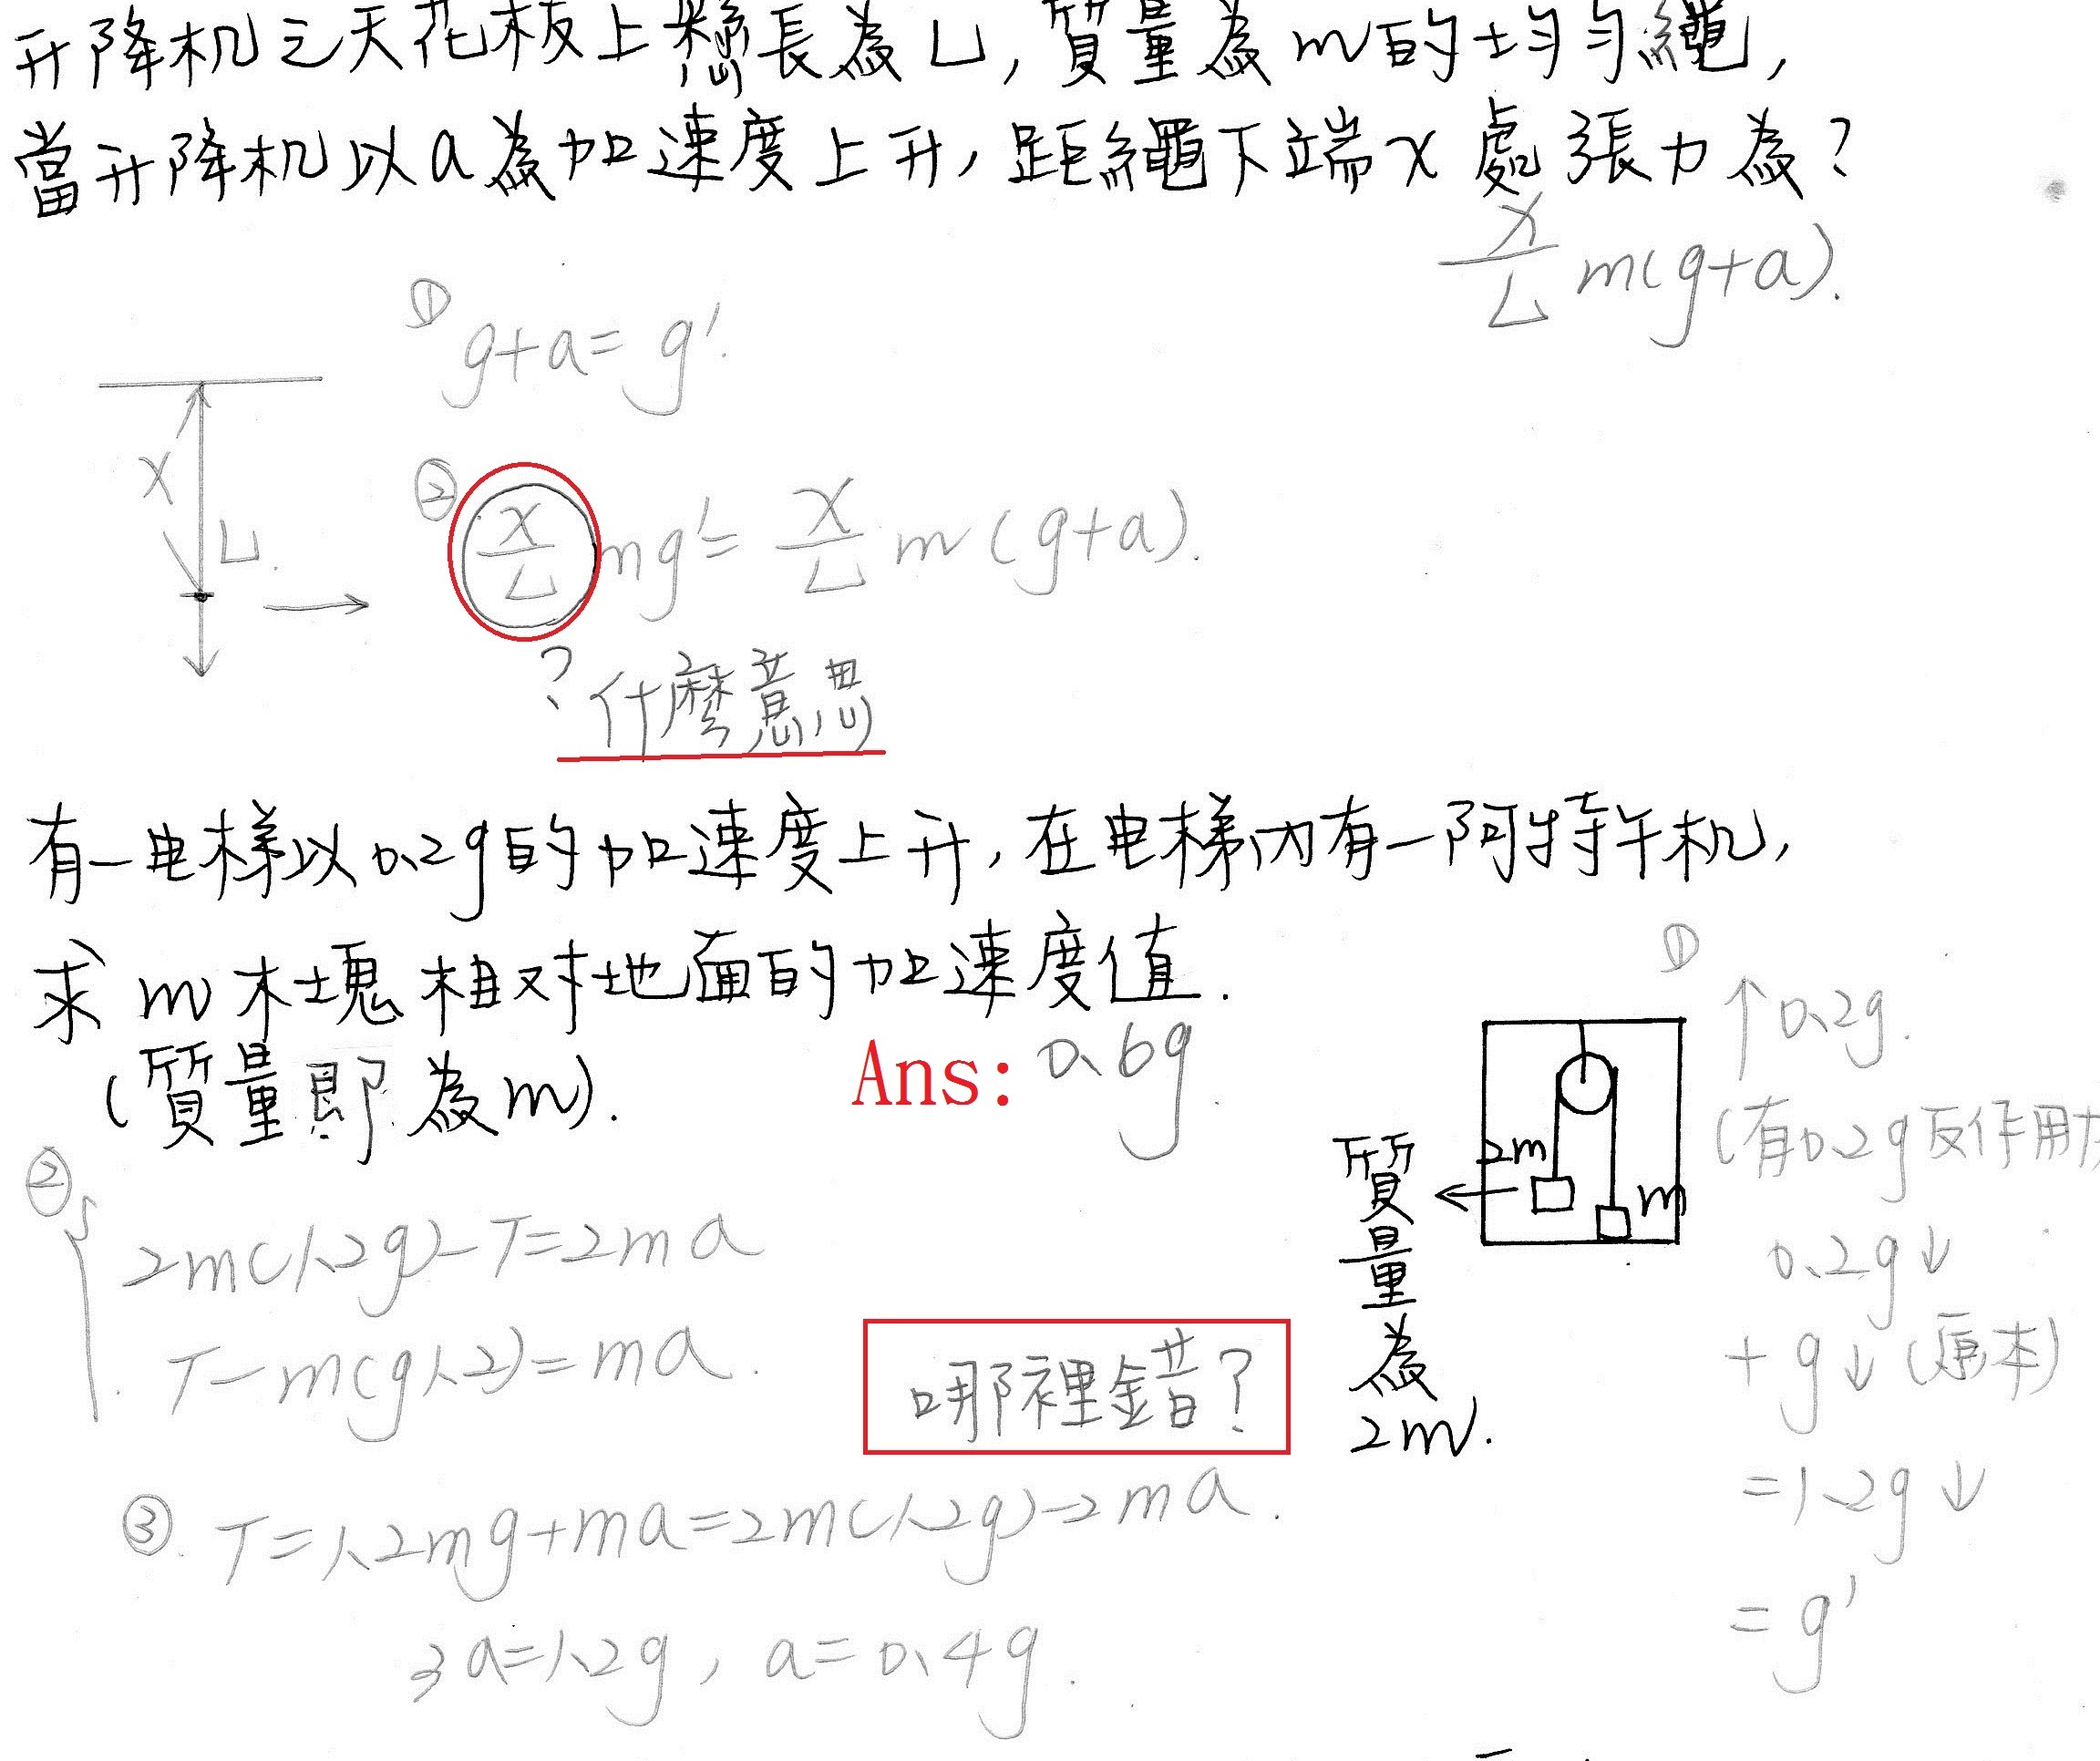 升降机之天花板上懸長為L,質量為m的均勻繩,
當升降机以a為加速度上升,距繩下端x處張力為?
x/L m(g+a).
① g+a=g'.
x
L.
② x/L mg'=x/L m(g+a).
?什麼意思
有一电梯以0.2g的加速度上升,在电梯內有一阿特午机,
求m木塊相对地面的加速度值.
(質量即為m).
Ans: 0.6g
①
↑0.2g.
(有0.2g反作用
0.2g↓
+g↓(原本)
=1.2g↓
=g'
2m
m
質量為2m.
② 2m(1.2g)-T=2ma
T-m(g1.2)=ma.
哪裡錯?
③. T=1.2mg+ma=2m(1.2g)-2ma.
3a=1.2g, a=0.4g.